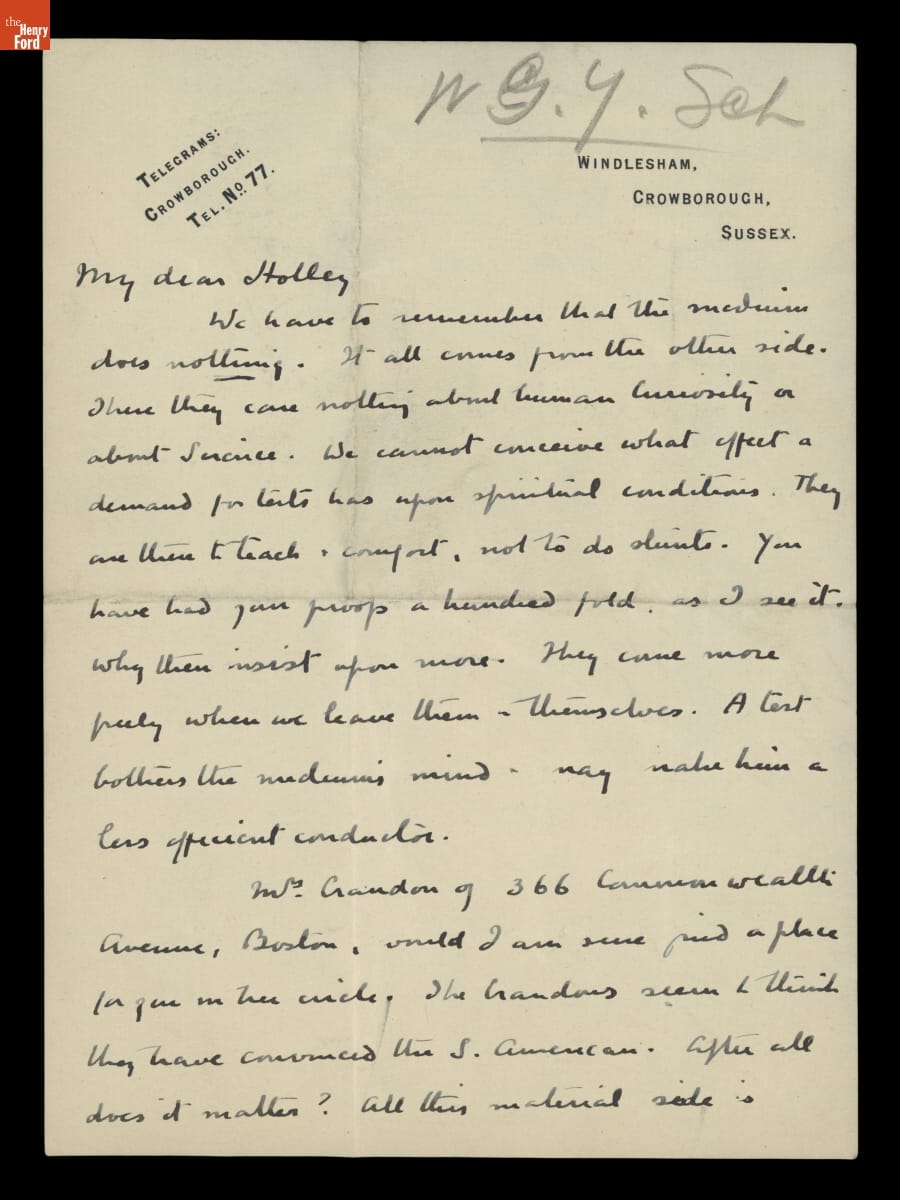 the
Henry
Ford
W G. Y. Sch
TELEGRAMS:
CROWBOROUGH.
TEL. No. 77.
WINDLESHAM,
CROWBOROUGH,
SUSSEX.
My dear Holley
We have to remember that the medium
does nothing. It all comes from the other side.
There they care nothing about human curiosity or
about Science. We cannot conceive what effect a
demand for tests has upon spiritual conditions. They
are there to teach & comfort, not to do stunts. You
have had your proofs a hundred fold, as I see it.
Why then insist upon more. They come more
freely when we leave them to themselves. A test
bothers the medium's mind & may make him a
less efficient conductor.
Mrs. Crandon of 366 Commonwealth
Avenue, Boston, would I am sure find a place
for you in her circle. The Crandons seem to think
they have convinced the S. American. After all
does it matter? All this material side is